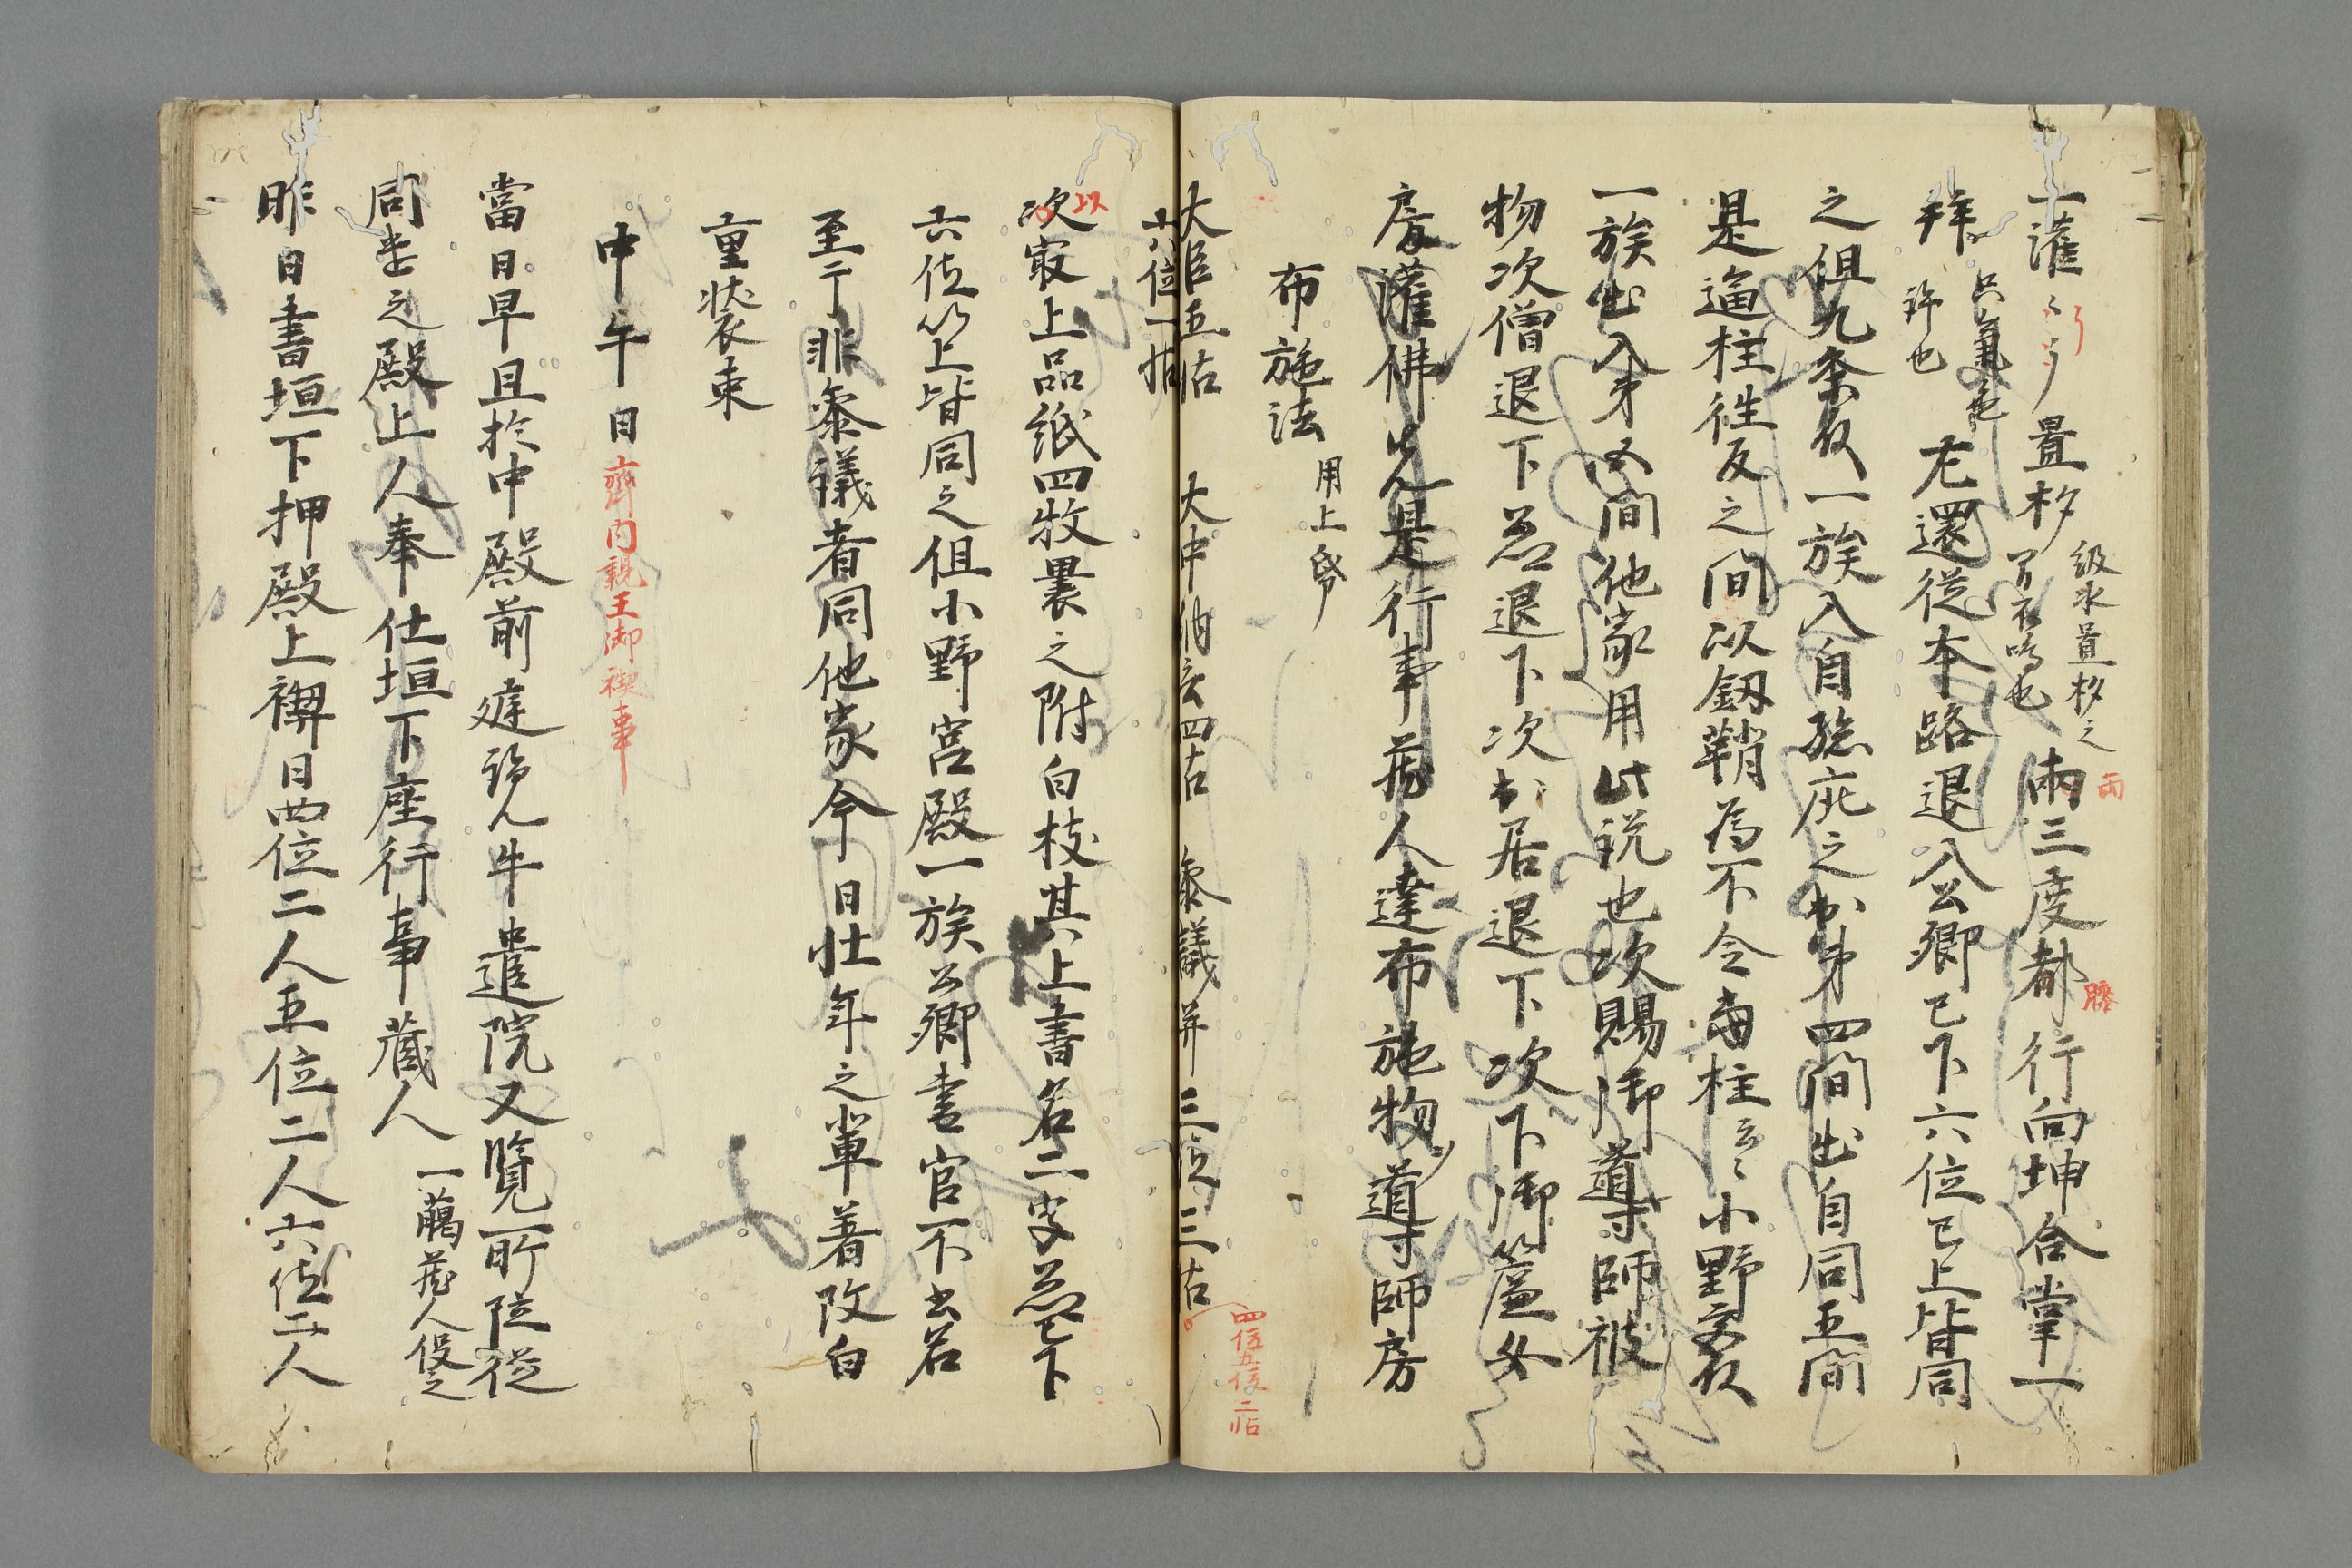 一灌々了置杓 汲水置杓之 間不鳴也 両三度都行向坤合掌一
拜 只氣色許也 左還従本路退入公卿已下六位已上皆同
之但九条以一族入自孫庇之 第四間出自同五間
是逼柱往反之間以釼鞘為不令 柱云々小野宮以
一族出入第五間他家用此説也次賜御導師被
物次僧退下 退下次 居退下次下御簾女
房灌佛先是行事蔵人達布施物導師房
布施法 用上帋
大臣五帖 大中納言四帖 参議并三位三帖 四位五位二帖
六位一帖
以最上品紙四枚裹之附白枝其上書名二字 已下
六位以上皆同之但小野宮殿一族公卿書官不書名
至于非参議者同他家今日壮年之輩着改白
重装束
中午日 齋内親王御禊事
當日早旦於中殿前庭 牛遣院又覧所陪従
同書之殿上人奉仕垣下座行事蔵人 一臈蔵人役之
昨日書垣下押殿上禊日四位二人五位二人六位二人